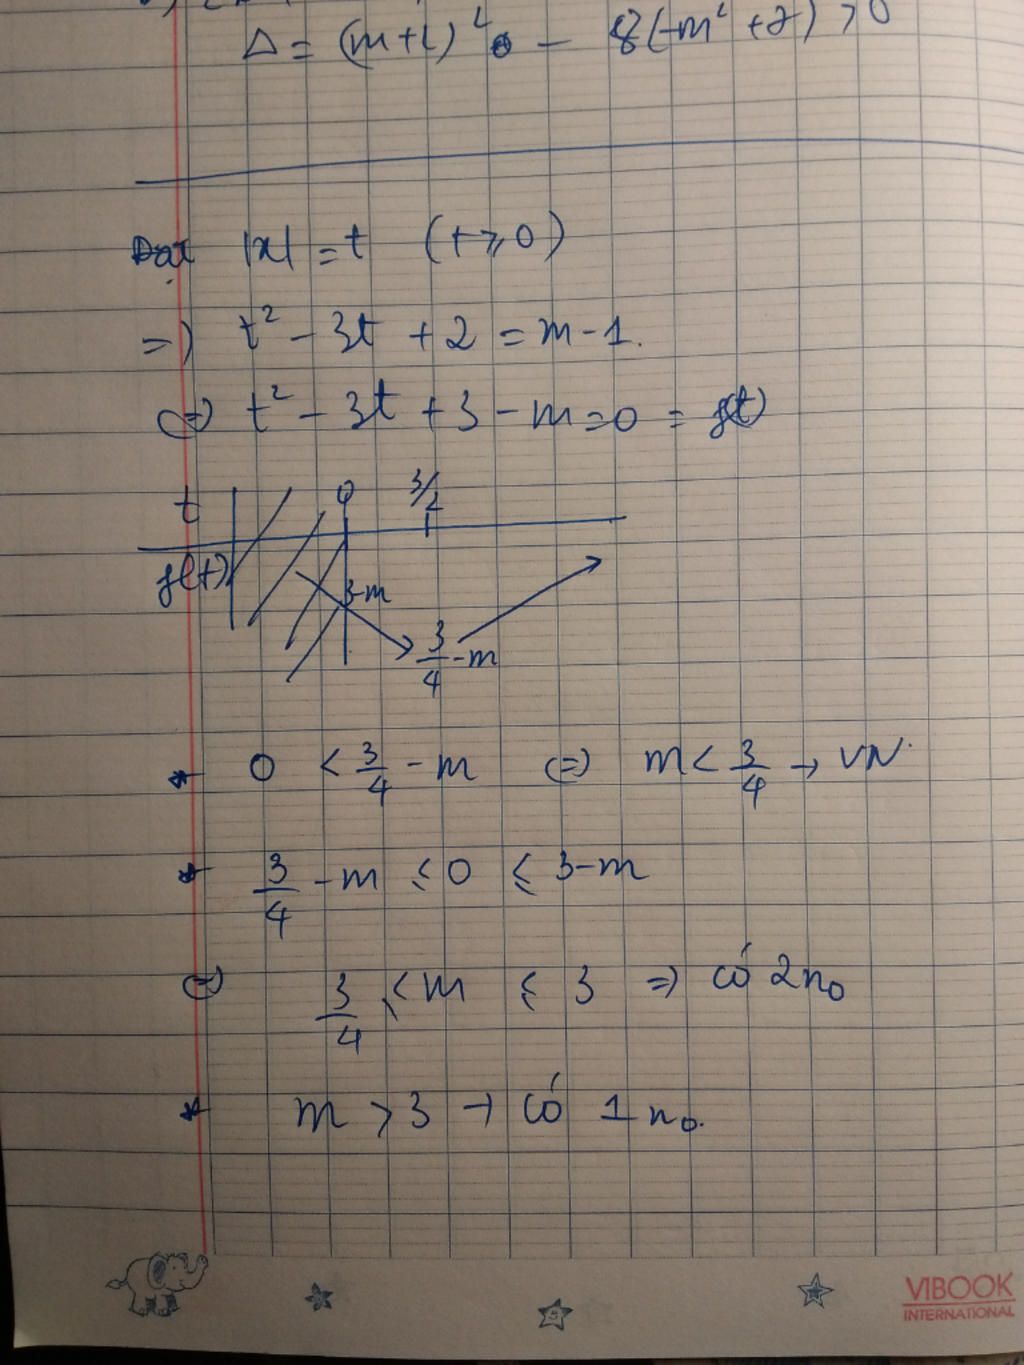 Δ = (m+1)² - 8(-m² + 2) > 0
Đặt |x| = t (t ≥ 0)
=) t² - 3t + 2 = m - 1.
(=) t² - 3t + 3 - m = 0 = f(t)
t 0 3/2
f(t) 3-m 3/4 - m
* 0 < 3/4 - m (=) m < 3/4 → VN.
* 3/4 - m ≤ 0 ≤ 3-m
(=) 3/4 < m ≤ 3 =) có 2 n₀
* m > 3 → có 1 n₀.
VIBOOK
INTERNATIONAL